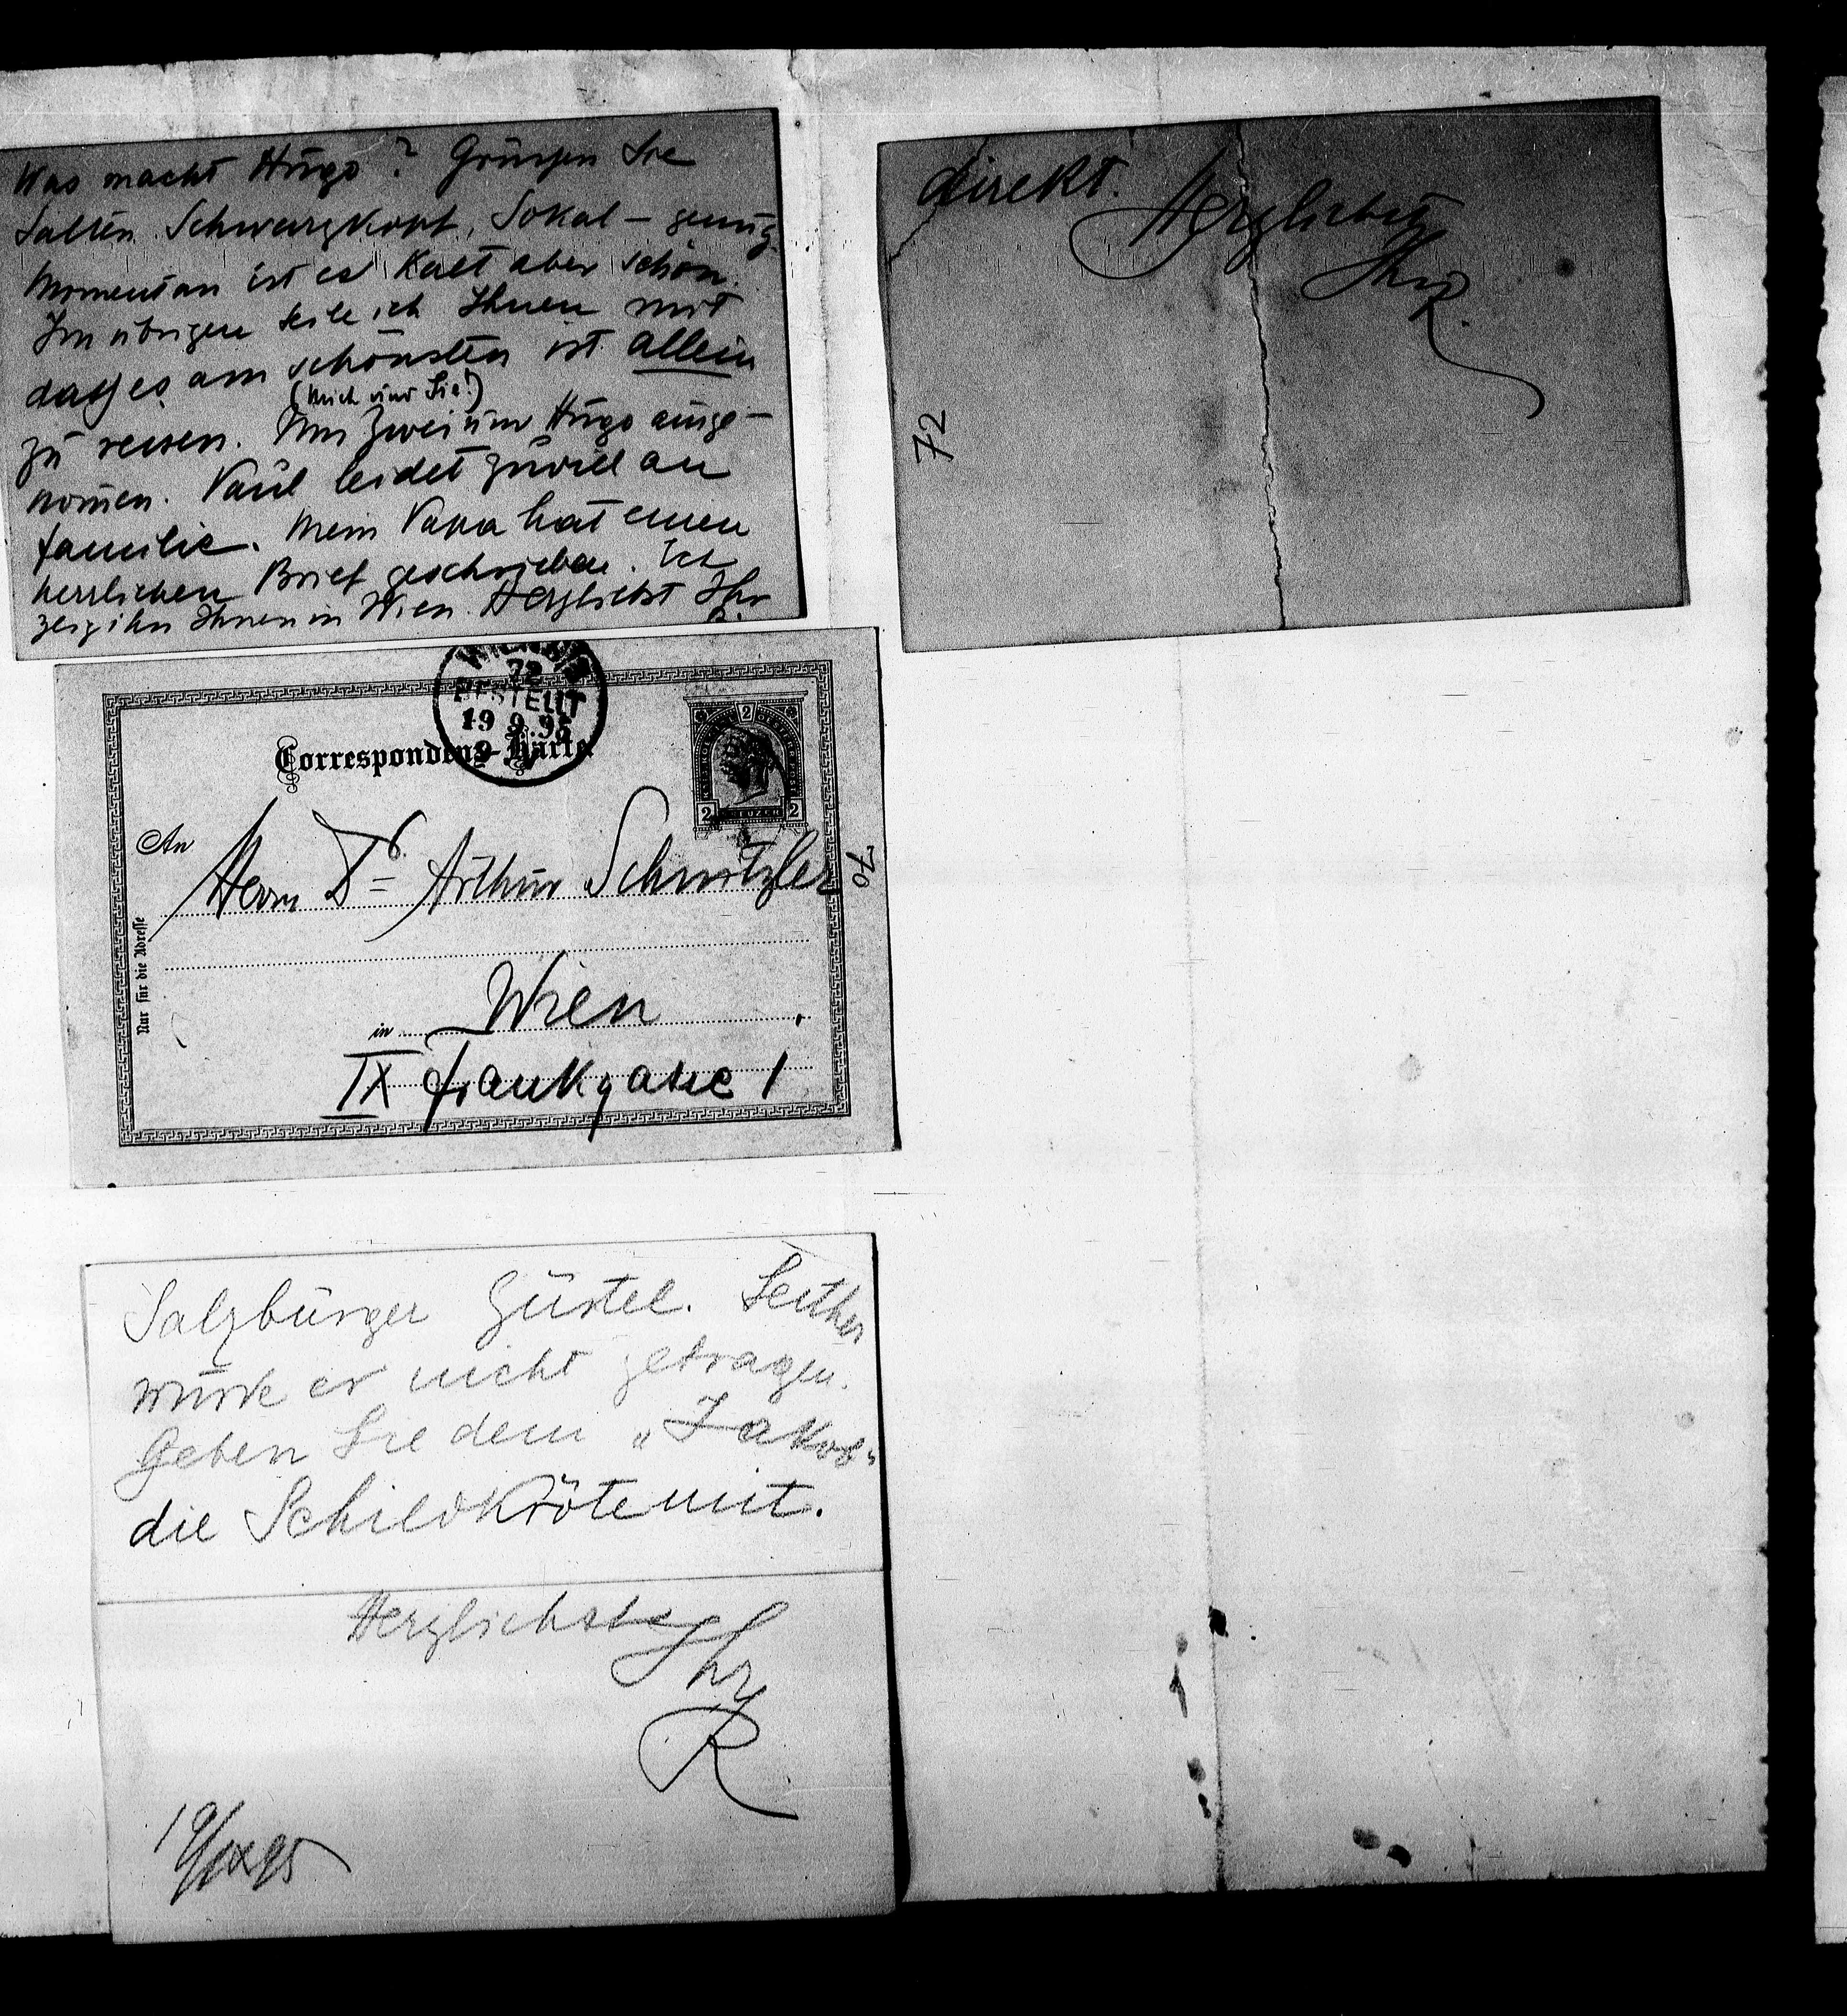 Was macht Hugo? Grüssen Sie
Salten, Schwarzkopf, Sokal – genug.
Momentan ist es kalt aber schön.
Im übrigen teile ich Ihnen mit
dass es am schönsten ist allein
(mich und Sie!)
zu reisen. Uns zwei und Hugo ausge-
nomen. Paul leidet zuviel an
Familie. Mein Papa hat einen
herrlichen Brief geschrieben. Ich
zeig ihn Ihnen in Wien. Herzlichst Ihr
R.
direkt.
Herzlichst
Ihr
R.
72
72
BESTELLT
19 9.95
Correspondenz-Karte
2
2 KREUZER 2
An Herrn Dr. Arthur Schnitzler
70
Nur für die Adresse
in Wien
IX Frankgasse 1
Salzburger Gürtel. Seither
wurde er nicht getragen.
Geben Sie dem „Jakob“
die Schildkröte mit.
Herzlichst
Ihr
R
19/IX 95